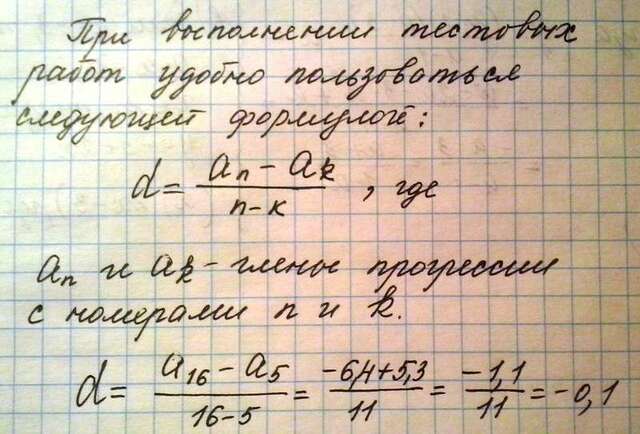 При выполнении тестовых
работ удобно пользоваться
следующей формулой:
d = (aₙ - aₖ) / (n - k), где
aₙ и aₖ - члены прогрессии
с номерами n и k.
d = (a₁₆ - a₅) / (16-5) = (-6,4+5,3) / 11 = -1,1 / 11 = -0,1